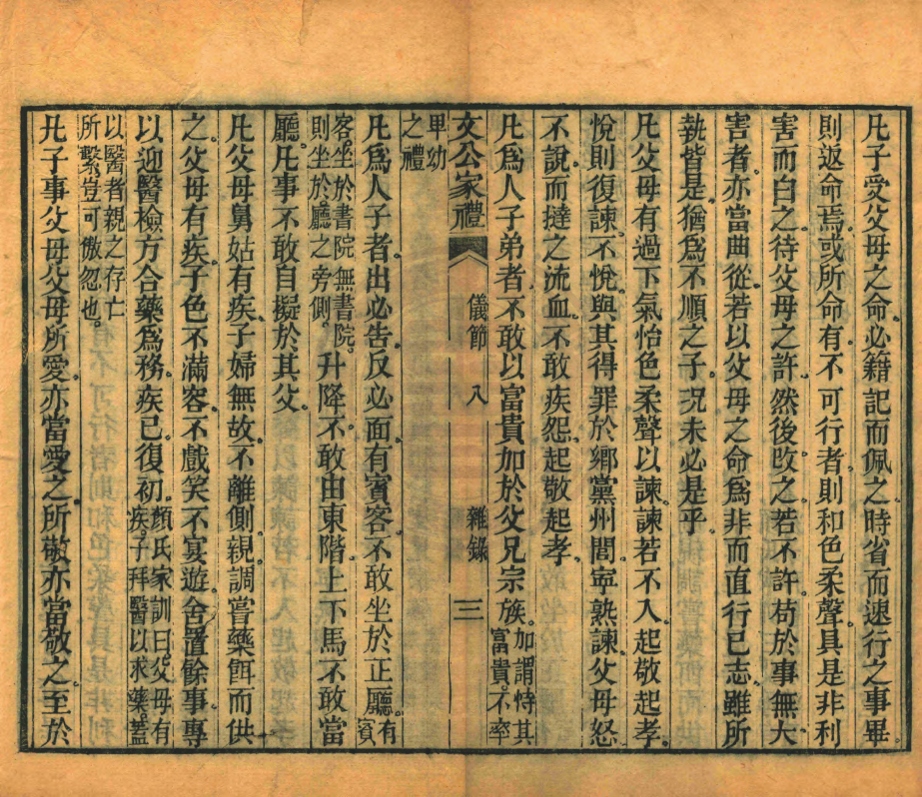 凡子受父母之命必籍記而佩之時省而速行之事畢
則返命焉或所命有不可行者則和色柔聲具是非利
害而白之待父母之許然後改之若不許茍於事無大
害者亦當曲從若以父母之命爲非而直行已志雖所
執皆是猶爲不順之子况未必是乎
凡父母有過下氣怡色柔聲以諫諫若不入起敬起孝
悅則復諫不悅與其得罪於鄉黨州閭寧熟諫父母怒
不說而撻之流血不敢疾怨起敬起孝
凡爲人子弟者不敢以富貴加於父兄宗族加謂恃其
富貴不率
卑幼
之禮
文公家禮 儀節 八 雜錄 三
凡爲人子者出必告反必面有賓客不敢坐於正廳有賓
客坐於書院無書院
則坐於廳之旁側升降不敢由東階上下馬不敢當
廳凡事不敢自擬於其父
凡父母舅姑有疾子婦無故不離側親調嘗藥餌而供
之父母有疾子色不滿容不戲笑不宴遊舍置餘事專
以迎醫檢方合藥爲務疾已復初顏氏家訓曰父母有
疾子拜醫以求藥蓋
以醫者親之存亡
所繫豈可傲忽也
凡子事父母父母所愛亦當愛之所敬亦當敬之至於